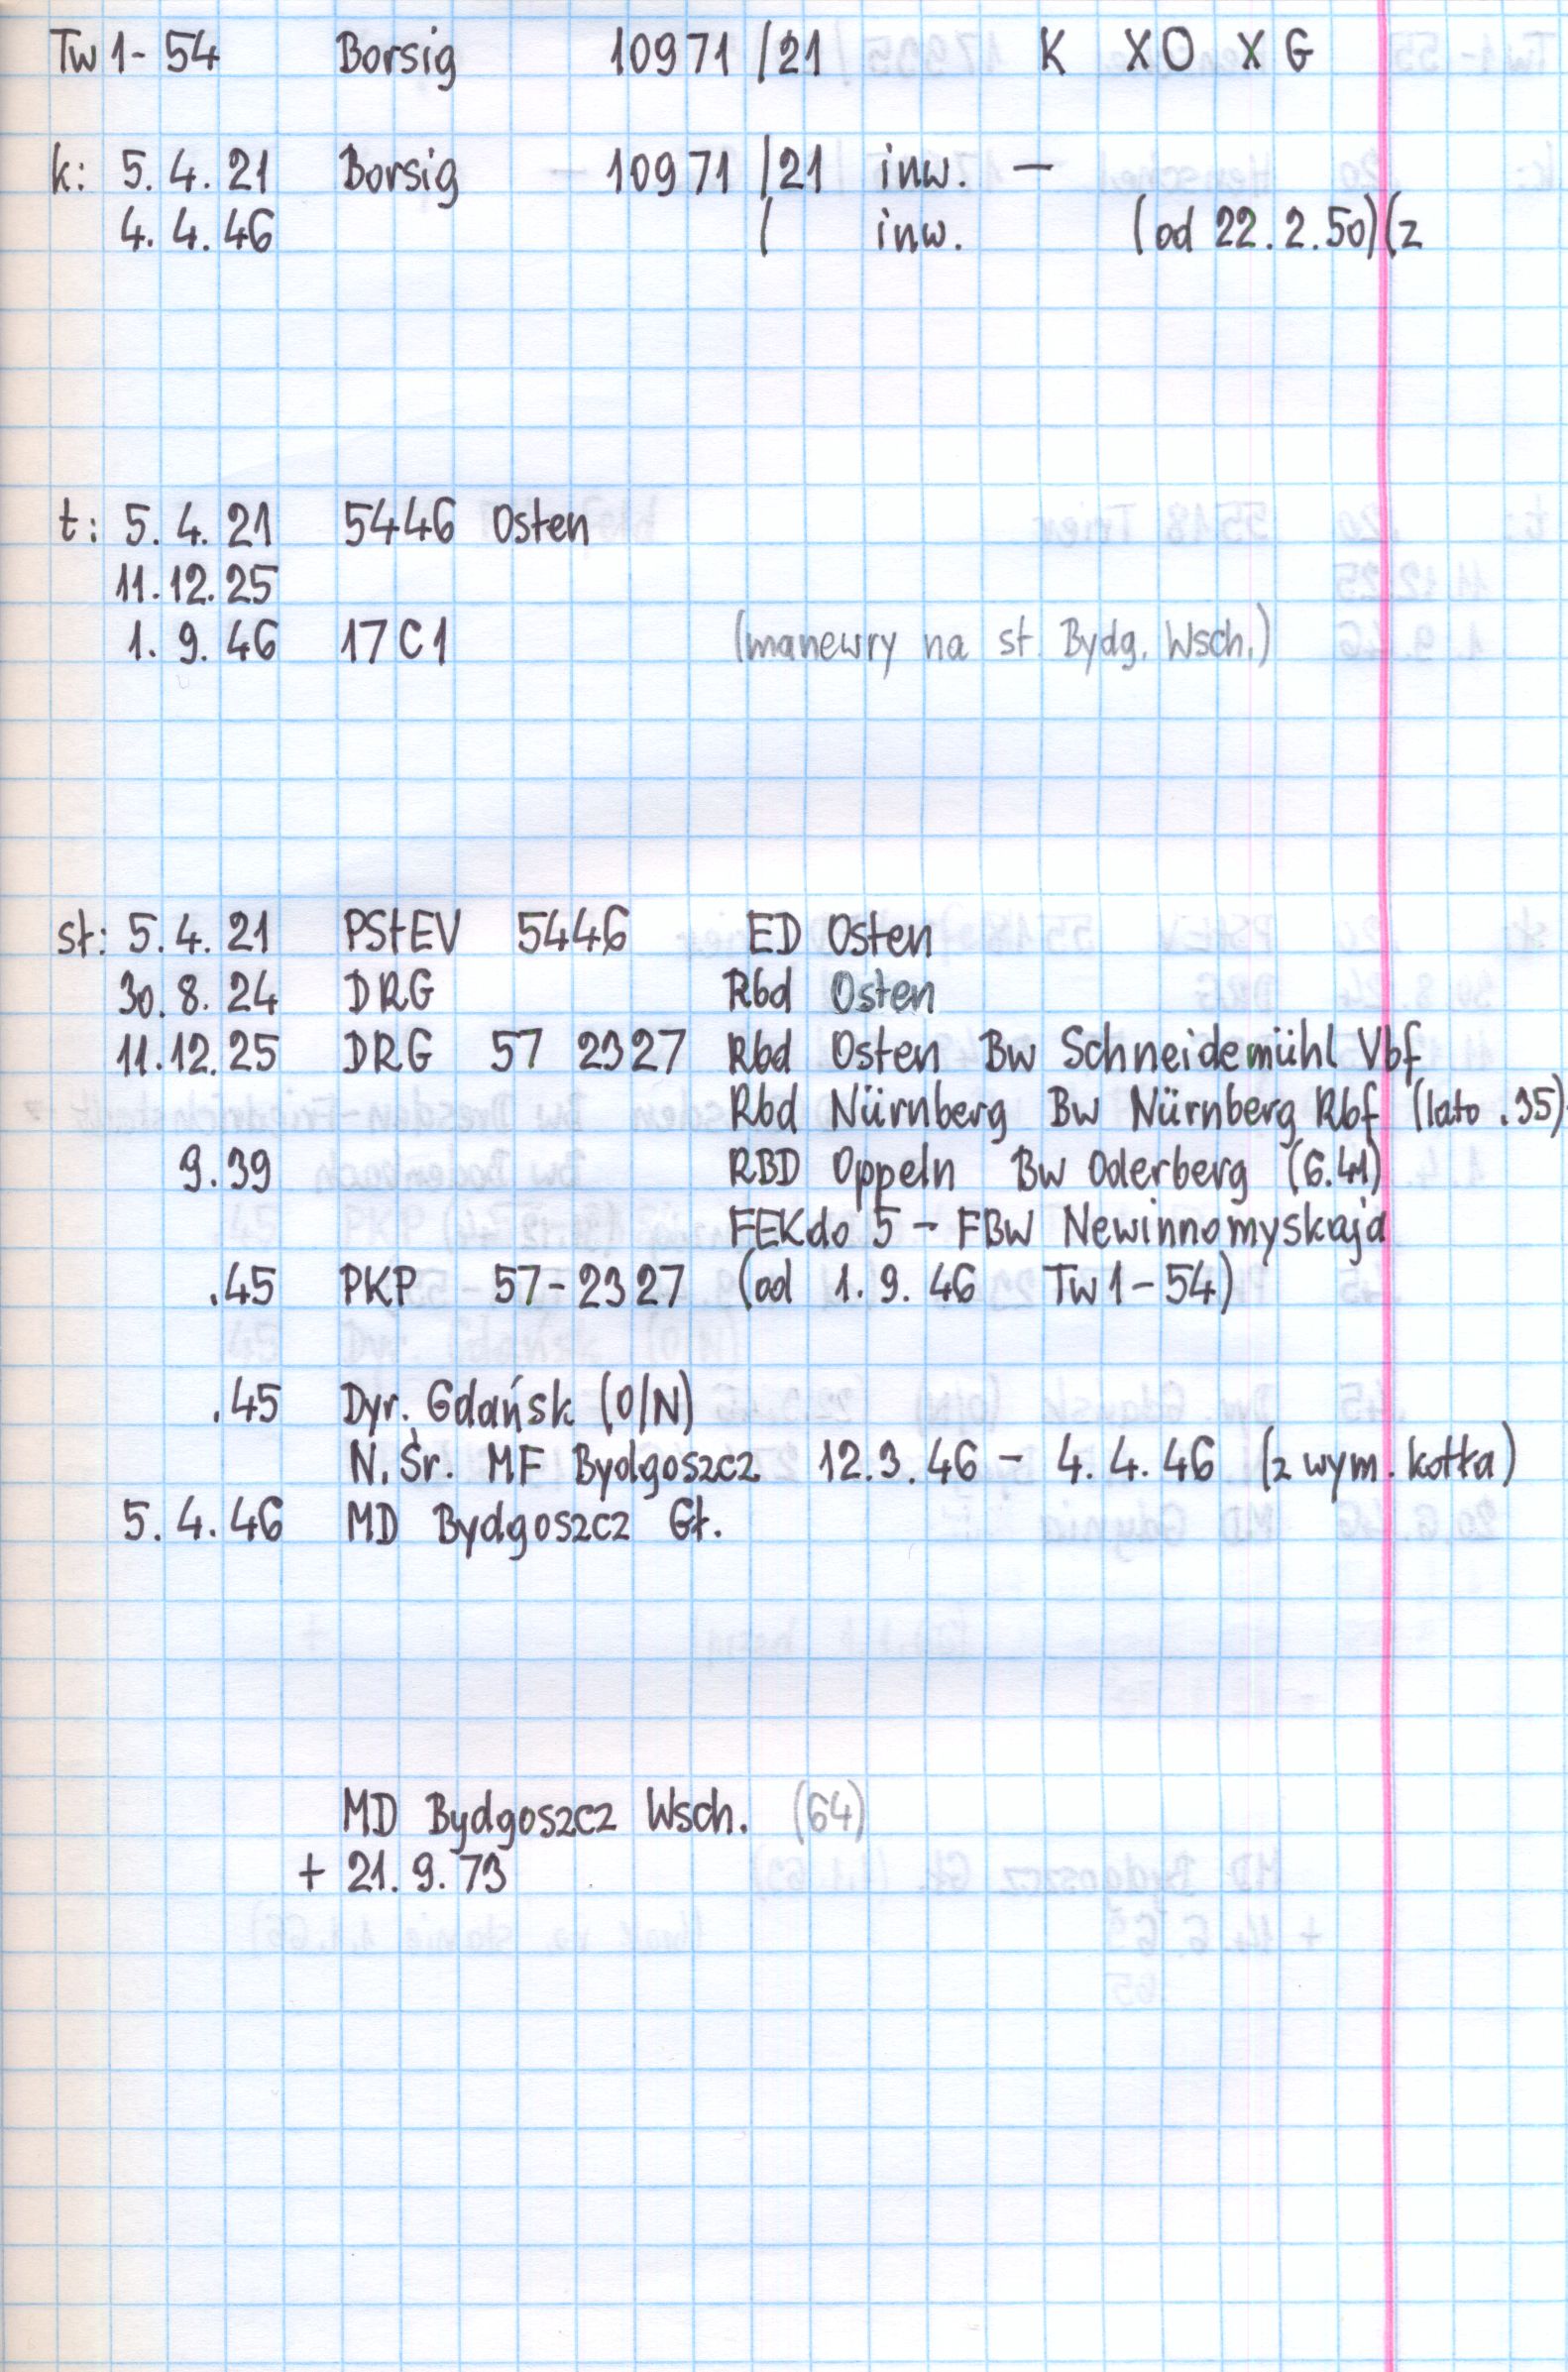 Tw1-54 Borsig 10971/21 K XO XG
k: 5.4.21 Borsig 10971/21 inw. —
4.4.46 / inw. (od 22.2.50)(z
t: 5.4.21 5446 Osten
11.12.25
1.9.46 17C1 (manewry na st. Bydg. Wsch.)
st: 5.4.21 PStEV 5446 ED Osten
30.8.24 DRG Rbd Osten
11.12.25 DRG 57 2327 Rbd Osten Bw Schneidemühl Vbf
Rbd Nürnberg Bw Nürnberg Rbf (lato .35)
9.39 RBD Oppeln Bw Oderberg (6.41)
FEKdo 5 - FBW Newinnomyskaja
.45 PKP 57-2327 (od 1.9.46 Tw1-54)
.45 Dyr. Gdańsk (O/N)
N.Śr. MF Bydgoszcz 12.3.46 - 4.4.46 (z wym. kotła)
5.4.46 MD Bydgoszcz Gł.
MD Bydgoszcz Wsch. (64)
+ 21.9.73